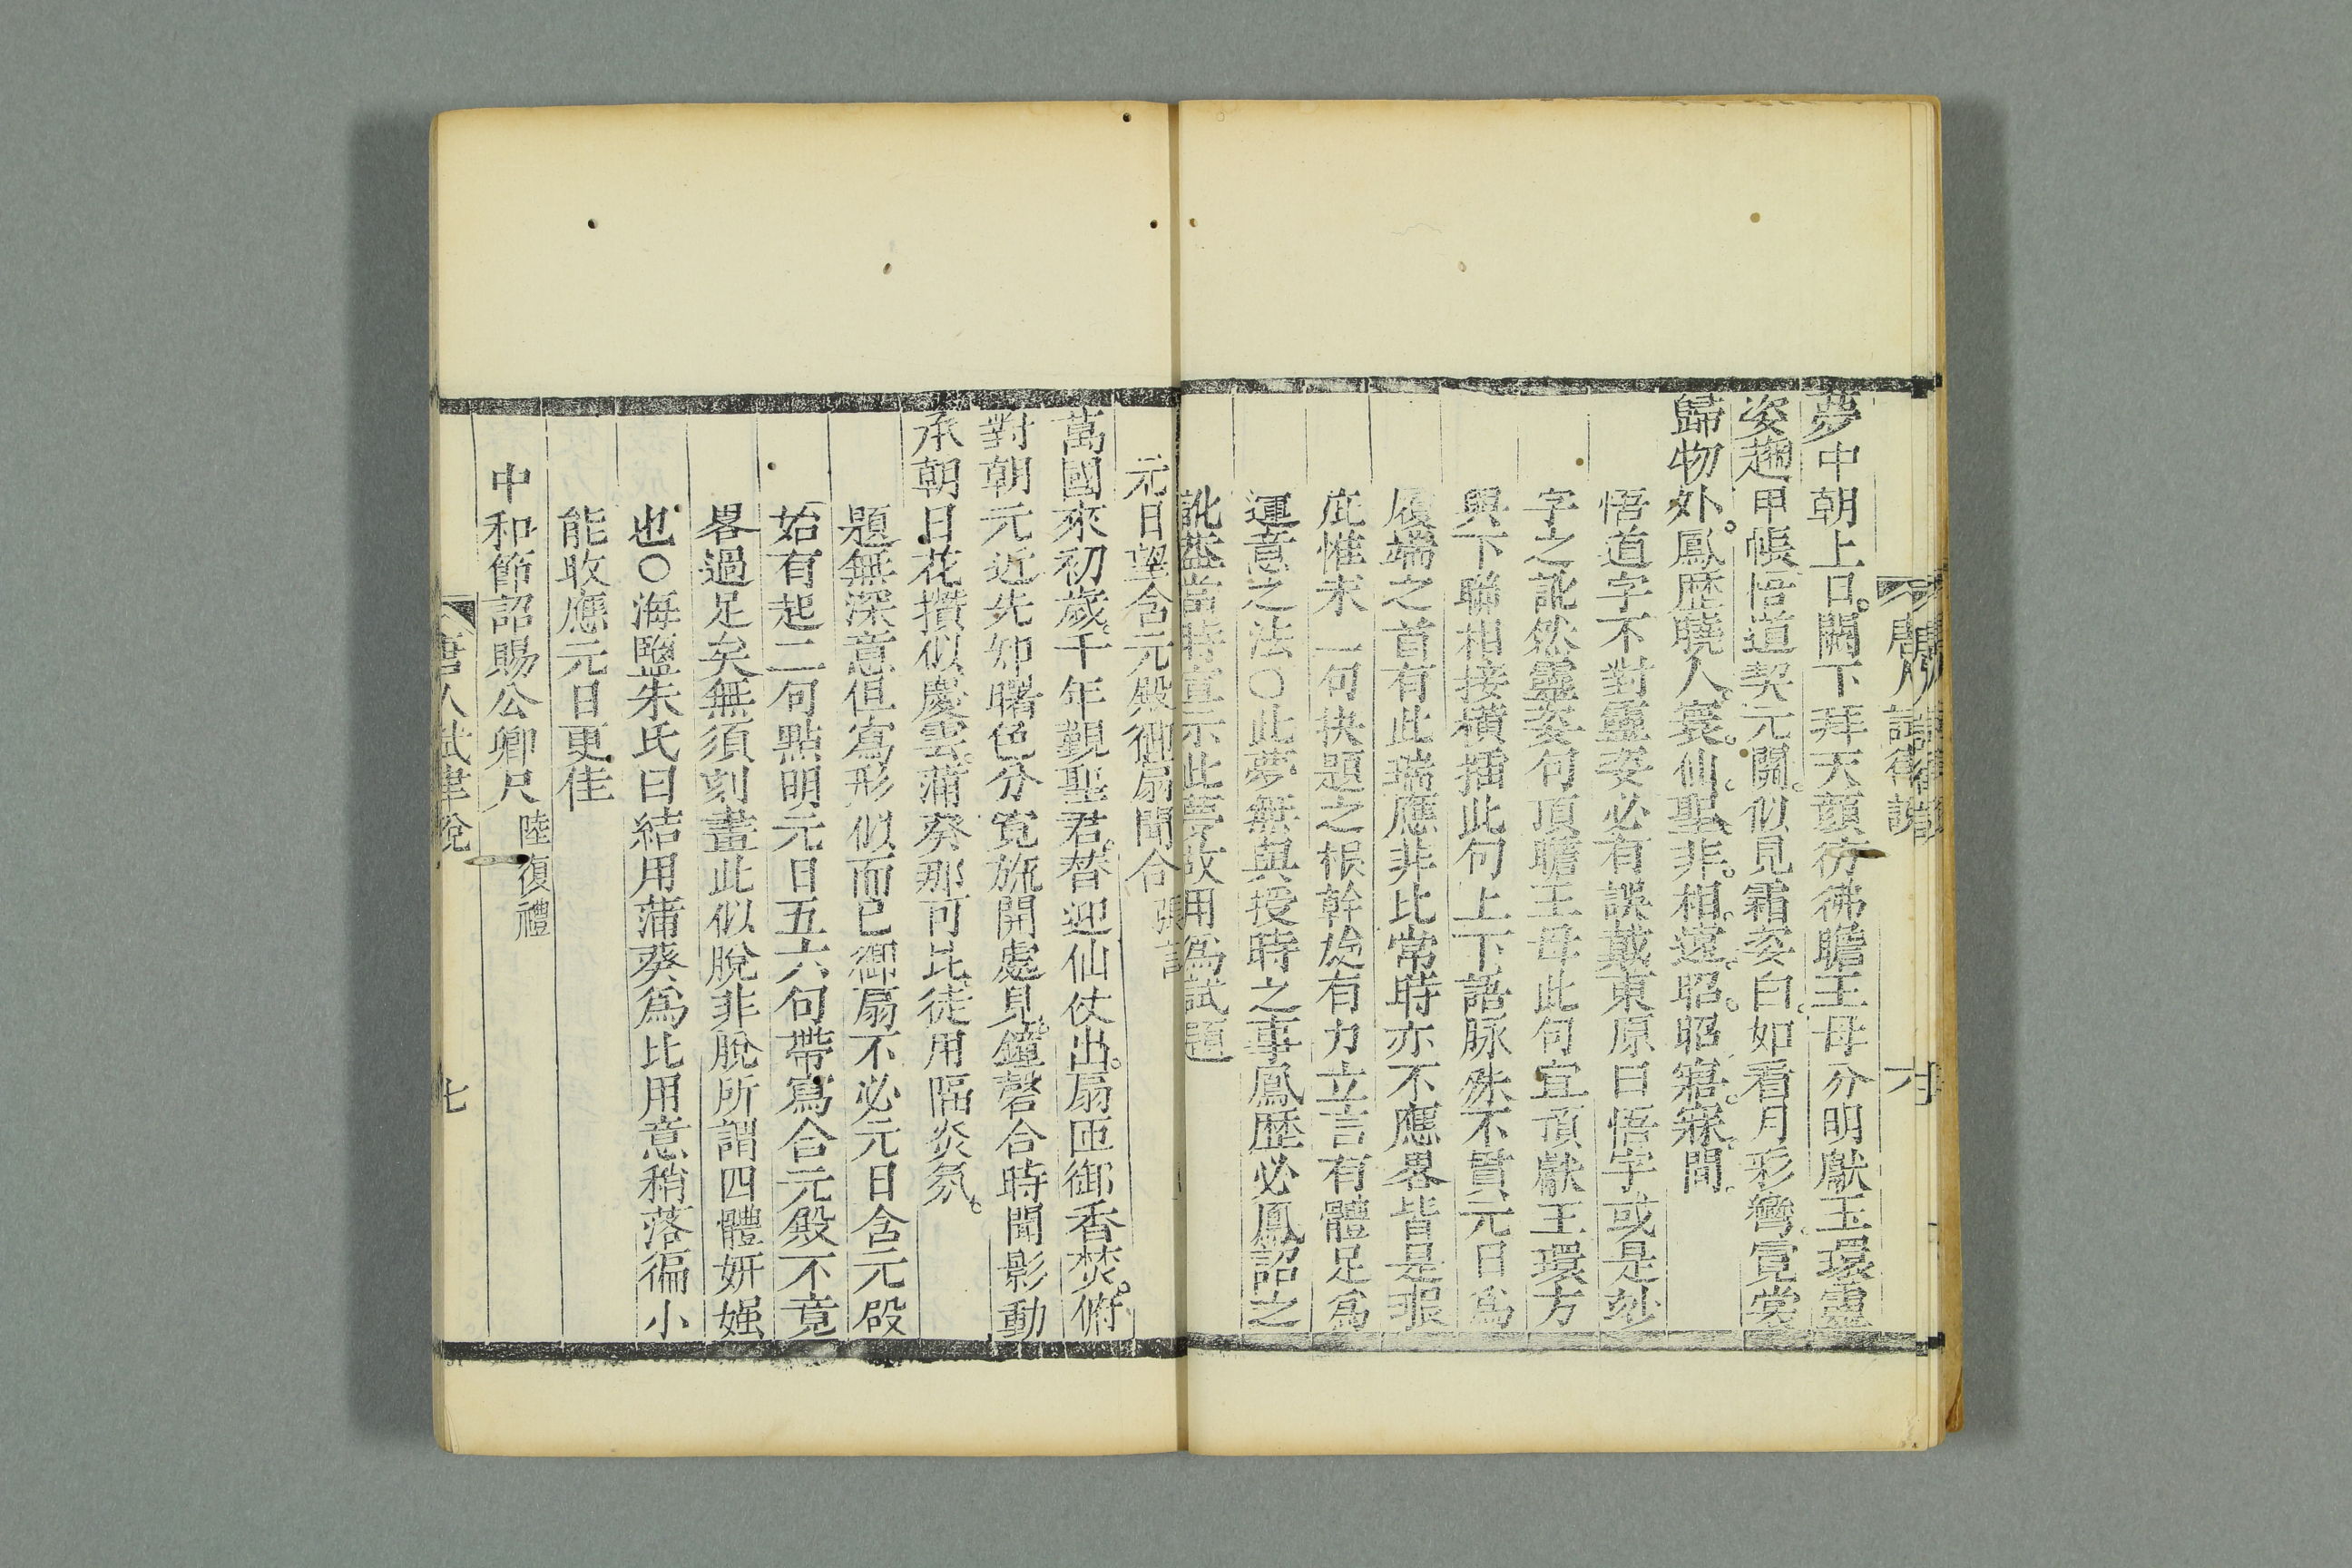 夢中朝上日。闕下拜天顔。彷彿瞻王母。分明獻玉環。靈
姿趨甲帳。悟道契元關。似見霜姿白。如看月彩彎。霓裳
歸物外。鳳歴曉人寰。仙聖非相遠。昭昭寤寐間。
悟道字不對靈姿必有誤戴東原曰悟字或是玅
字之訛然靈姿句頂瞻王母此句宜頂獻玉環方
與下聯相接橫插此句上下語脉殊不貫元日爲
履端之首有此瑞應非比常時亦不應畧皆是瑕
疵惟末一句抉題之根幹處有力立言有體足爲
運意之法○此夢無與授時之事鳳歴必鳳詔之
訛葢當時宣示此夢故用爲試題
元日望含元殿御扇開合 張
萬國來初歲。千年覲聖君。輦迎仙仗出。扇匝御香焚。俯
對朝元近。先知曙色分。冕旒開處見。鐘磬合時聞。影動
承朝日。花攢似慶雲。蒲葵那可比。徒用隔炎氛。
題無深意但寫形似而已御扇不必元日含元殿
始有起二句點明元日五六句帶寫含元殿不竟
畧過足矣無須刻畫此似脫非脫所謂四體妍媸
也○海鹽朱氏曰結用蒲葵爲比用意稍落徧小
能收應元日更佳
中和節詔賜公卿尺 陸復禮
唐人試律說 七